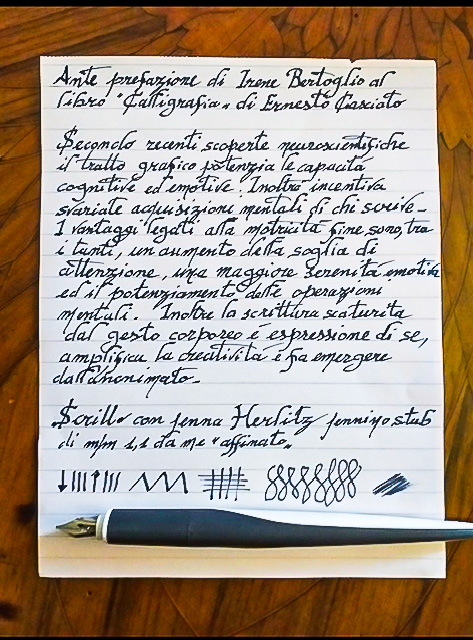 Ante prefazione di Irene Bertoglio al
libro "Calligrafia" di Ernesto Casciato
Secondo recenti scoperte neuroscientifiche
il tratto grafico potenzia le capacità
cognitive ed emotive. Inoltre incentiva
svariate acquisizioni mentali di chi scrive.
I vantaggi legati alla motricità fine sono, tra
i tanti, un aumento della soglia di
attenzione, una maggiore serenità emotiva
ed il potenziamento delle operazioni
mentali. Inoltre la scrittura scaturita
dal gesto corporeo é espressione di se,
amplifica la creatività é fa emergere
dall'anonimato.
Scritto con penna Herlitz pennino stub
di m/m 1,1 da me "affinato"